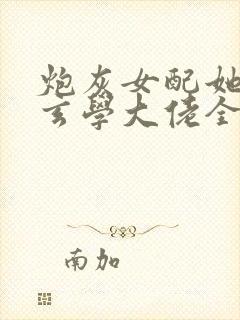 炮灰女配她
玄學大佬全
南加